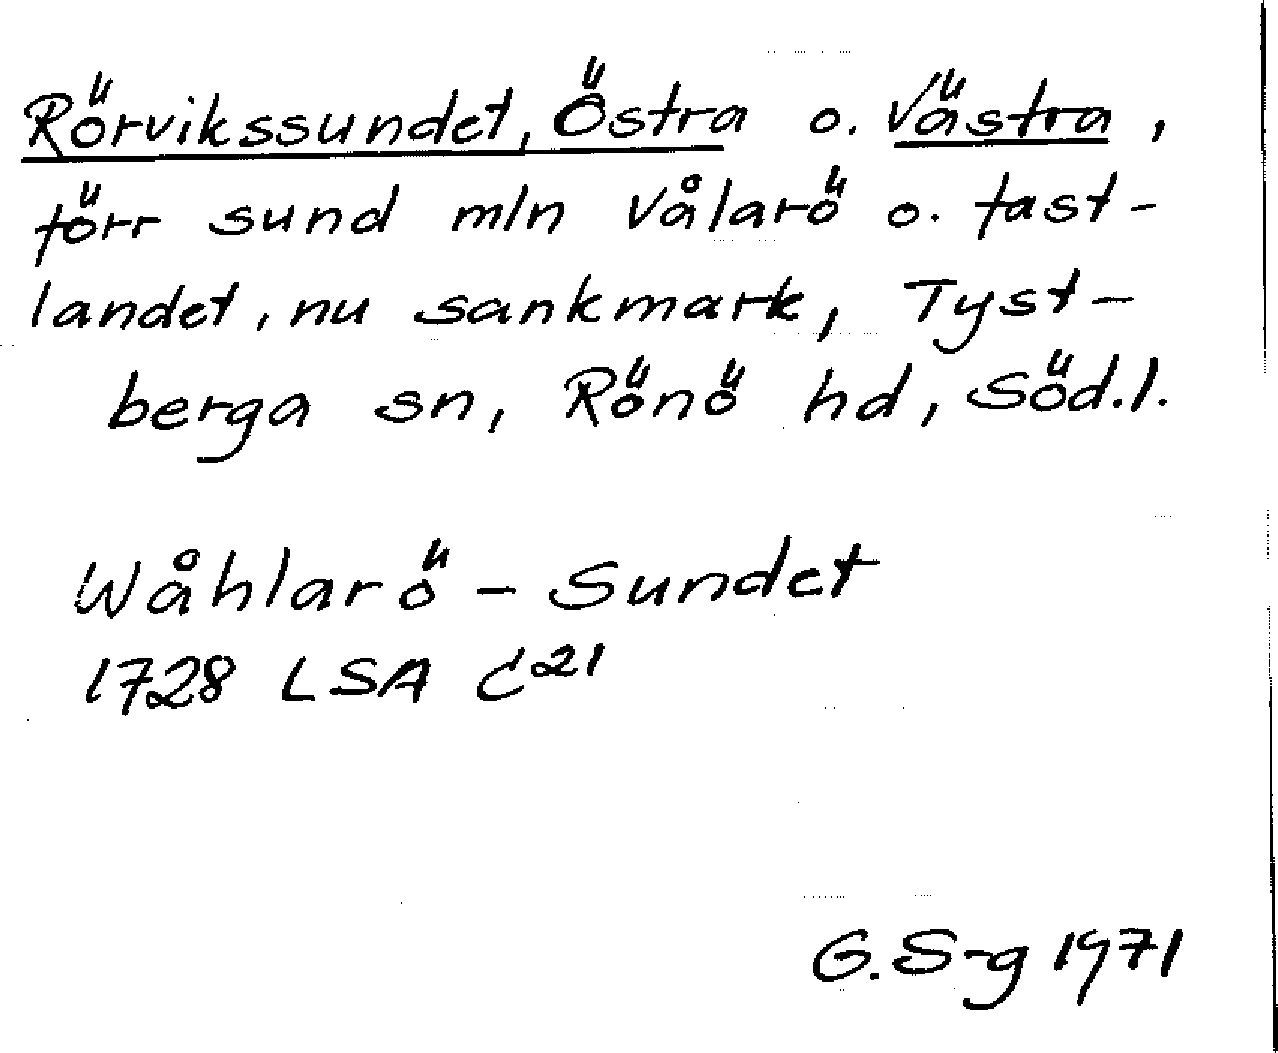 Rörvikssundet, Östra o. Västra,
förr sund mln Vålarö o. fast-
landet, nu sankmark, Tyst-
berga sn, Rönö hd, Söd.l.
Wåhlarö - Sundet
1728 LSA C²¹
G. S-g 1971